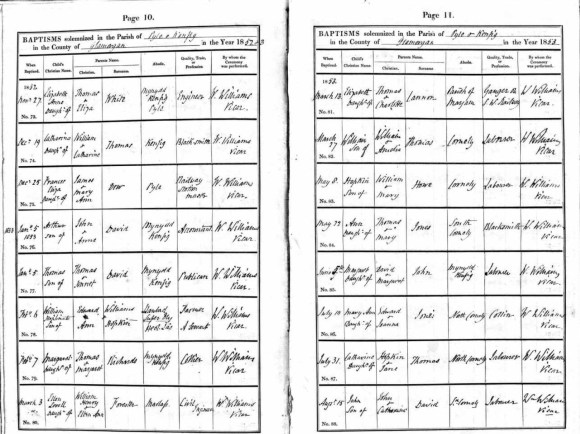 Page 10.
BAPTISMS solemnized in the Parish of Pyle & Kenfig
in the County of Glamorgan in the Year 1852-3
When Baptized. Child's Christian Name. Parents Name Abode. Quality, Trade, or Profession. By whom the Ceremony was performed.
Christian. Surname.
1852
Novr 27 Elizabeth Anne Daughr of Thomas & Eliza White Mynydd Kenfig Pyle Engineer W. Williams Vicar
No. 73.
Decr 19 Catharine Daughr of William & Catharine Thomas Kenfig Blacksmith W. Williams Vicar
No. 74.
Decr 25 Frances Eliza Daughr of James & Mary Ann Dow Pyle Railway Station master W. Williams Vicar
No. 75.
1853 Jany 5 1853 Arthur son of John & Anne David Mynydd Kenfig Accountant W. Williams Vicar
No. 76.
Jany 5 Thomas son of Thomas & David Mynydd Kenfig Publican W. Williams Vicar
No. 77.
Feby 6 William son of Edward & Ann Williams Hopkin Farmer W. Williams Vicar
No. 78.
Feby 7 Margaret Daughr of Thomas & Margaret Richards Mynydd Kenfig Collier W. Williams Vicar
No. 79.
March 3 Ellen Daughr of William Henry & Ellen Ann Forester Civil W. Williams Vicar
No. 80.
Page 11.
BAPTISMS solemnized in the Parish of Pyle & Kenfig
in the County of Glamorgan in the Year 1853
When Baptized. Child's Christian Name. Parents Name Abode. Quality, Trade, or Profession. By whom the Ceremony was performed.
Christian. Surname.
1853
March 13 Elizabeth Daughr of Thomas & Charlotte Lannon Parish of Margam Ganger S W. Railway W. Williams Vicar
No. 81.
March 27 William Son of William & Thomas Cornely Labourer W. Williams Vicar
No. 82.
May 8 Hopkin son of William & Mary Howe Cornely Labourer W. Williams Vicar
No. 83.
May 22 Ann Daughr of Thomas & Mary Jones South Cornely Blacksmith W. Williams Vicar
No. 84.
Margaret Daughr of David & Margaret John Mynydd Kenfig Labourer W. Williams Vicar
No. 85.
July 10 Mary Ann Daughr of Edward & Jones North Cornely Collier W. Williams Vicar
No. 86.
July 31 Catharine Daughr of Hopkin & Jane Thomas North Cornely Labourer W. Williams Vicar
No. 87.
Augst 15 John Son of John & Catharine David Cornely Labourer Vicar
No. 88.